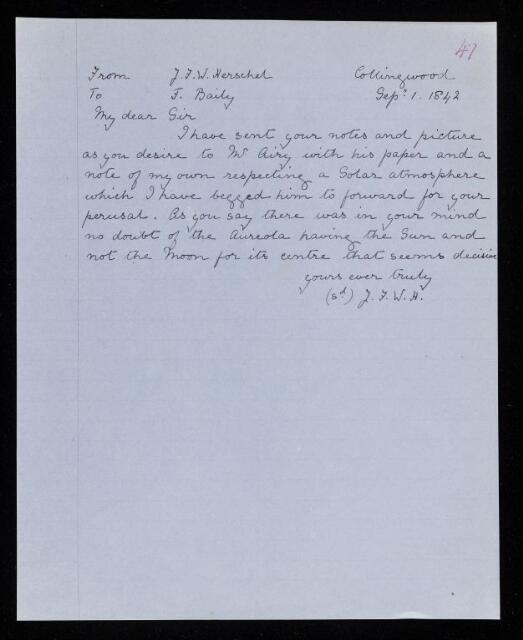 47
From J.F.W. Herschel Collingwood
To F. Baily Sepr. 1. 1842
My dear Sir
I have sent your notes and picture
as you desire to Mr Airy with his paper and a
note of my own respecting a Solar atmosphere
which I have begged him to forward for your
perusal. As you say there was in your mind
no doubt of the Aureola having the Sun and
not the Moon for its centre that seems decisive
yours ever truly
(sd) J.F.W.H.